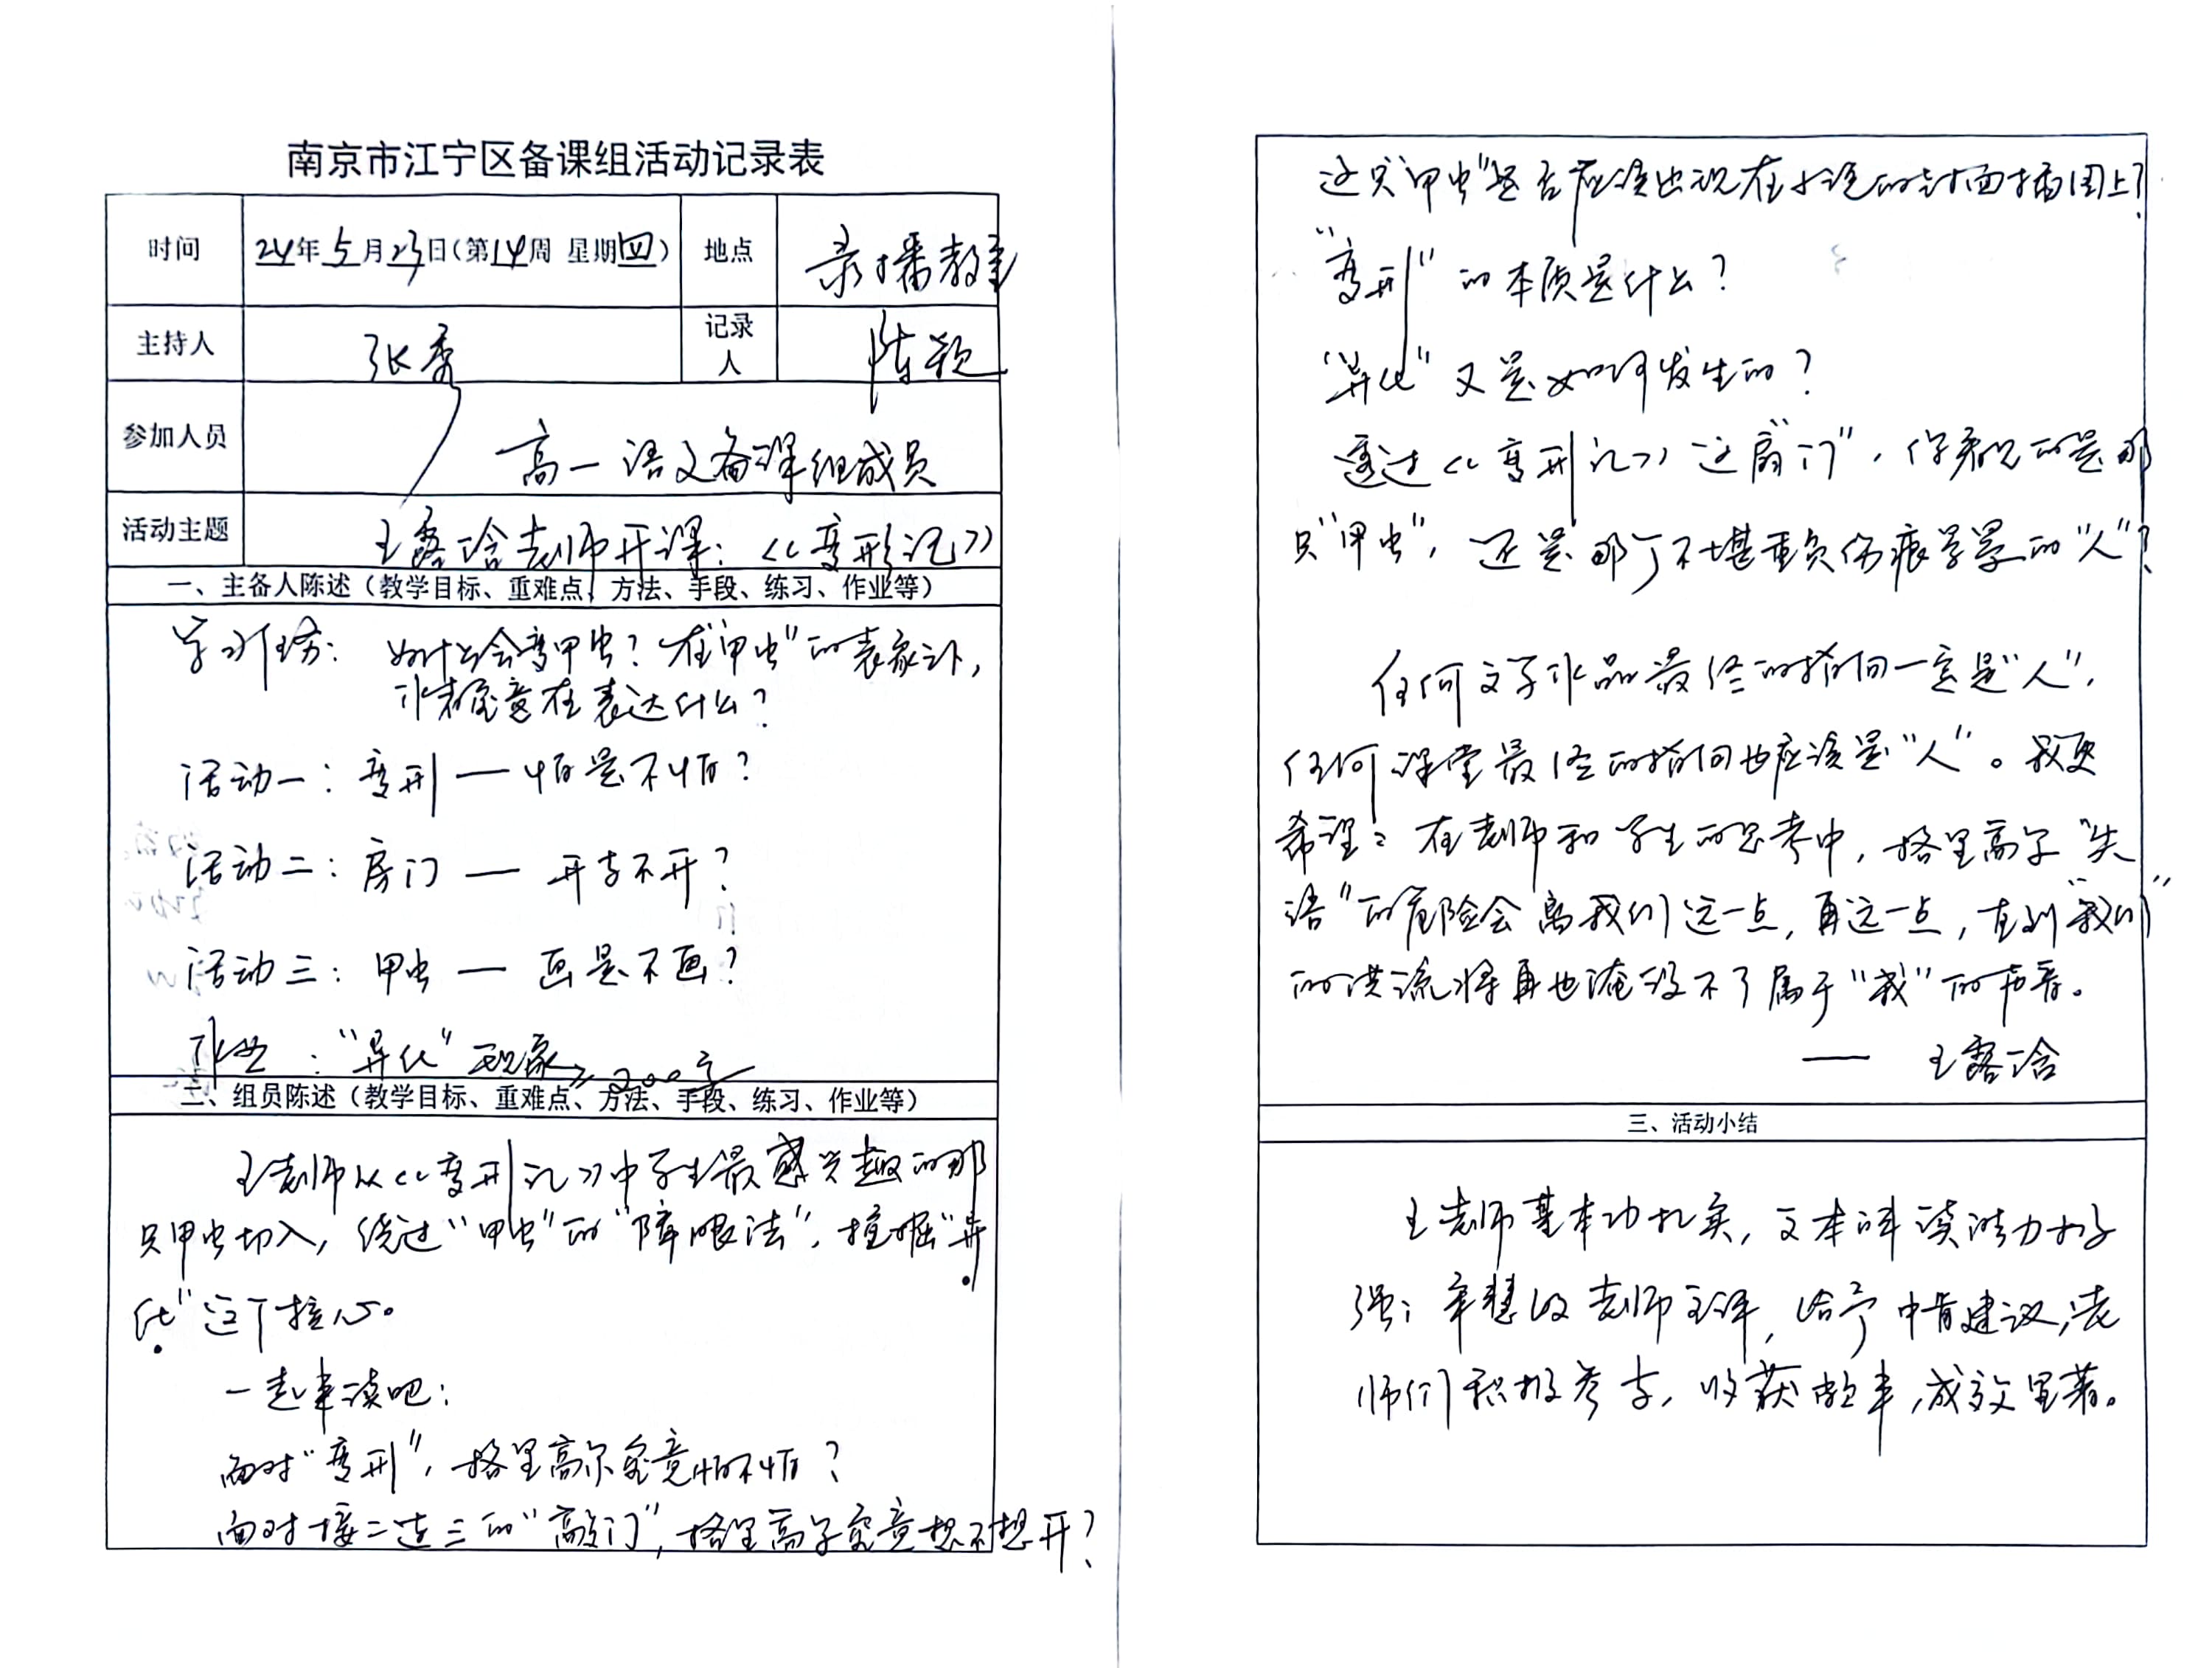 南京市江宁区备课组活动记录表
时间 24年5月23日(第14周 星期四) 地点 录播教室
主持人 张秀 记录人 陈颖
参加人员 高一语文备课组成员
活动主题 王露晗老师开课:《变形记》
一、主备人陈述(教学目标、重难点、方法、手段、练习、作业等)
为什么会变甲虫?在“甲虫”的表象之下,
作者究竟意在表达什么?
活动一:变形—怕是不怕?
活动二:房门—开与不开?
活动三:甲虫—画是不画?
作业:“异化”现象≥200字
二、组员陈述(教学目标、重难点、方法、手段、练习、作业等)
王老师从《变形记》中学生最感兴趣的那
只甲虫切入,绕过“甲虫”的“障眼法”,挖掘“异
化”这个核心。
一起来读吧:
面对“变形”,格里高尔究竟怕不怕?
面对接二连三的“敲门”,格里高尔究竟想不想开?
这只“甲虫”是否应该出现在小说的封面插图上?
“变形”的本质是什么?
“异化”又是如何发生的?
透过《变形记》这扇“门”,你看见的是那
只“甲虫”,还是那个不堪重负伤痕累累的“人”?
任何文学作品最终的指向一定是“人”,
任何课堂最终的指向也应该是“人”。我更
希望:在老师和学生的思考中,格里高尔“失
语”的危险会离我们远一点,再远一点,直到“我们”
的洪流将再也淹没不了属于“我”的声音。
— 王露晗
三、活动小结
王老师基本功扎实,文本解读能力极
强;老师主评,给予中肯建议;老
师们积极参与,收获颇丰,成效显著。